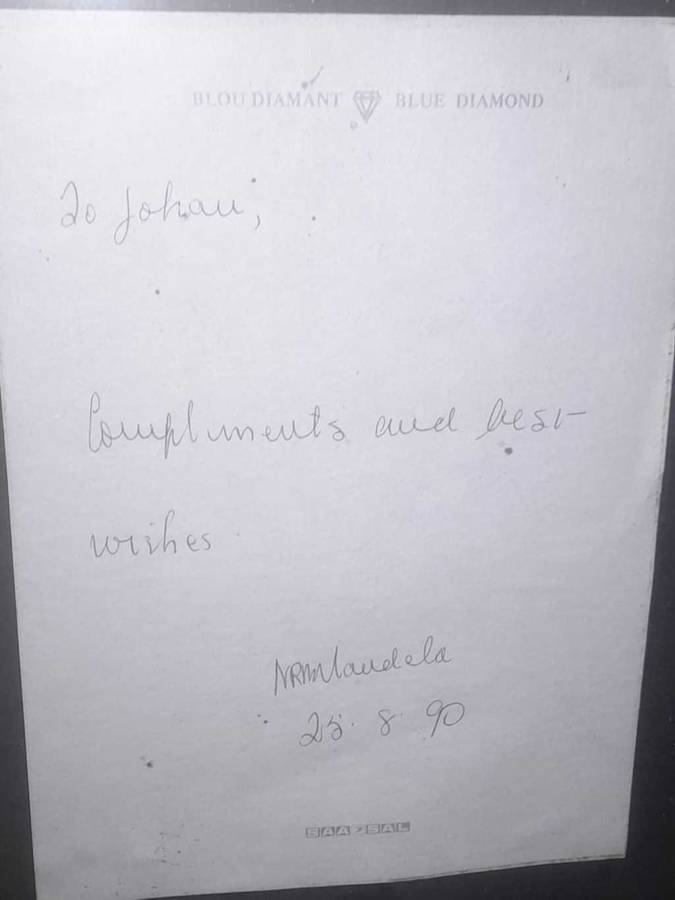 BLOU DIAMANT BLUE DIAMOND
To Johan,
Compliments and best
wishes
NRMandela
25. 8. 90
SAA SAL